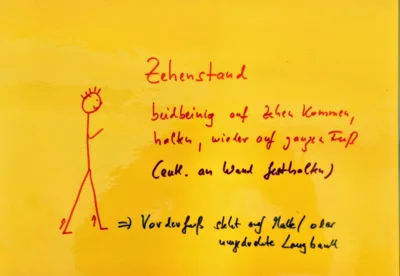 Zehenstand
beidbeinig auf Zehen kommen,
halten, wieder auf ganzen Fuß
(evtl. an Wand festhalten)
⇒ Vorderfuß steht auf Matte/ oder
umgedrehte Langbank